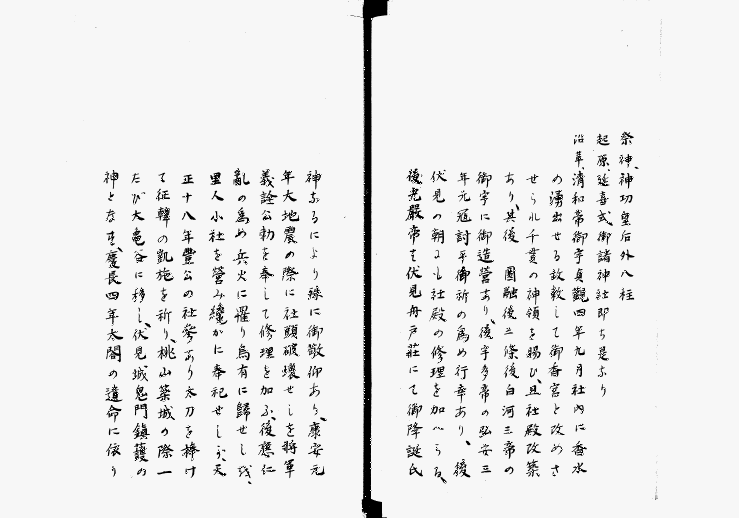 祭神、神功皇后外八柱
起原、延喜式御諸神社即ち是なり
沿革、清和帝御宇貞觀四年九月社內に香水
の湧出せる故敕して御香宮と改めさ
せられ千貫の神領を賜ひ、且社殿改築
あり、其後 圓融後三條後白河三帝の
御宇に御造營あり、後宇多帝の弘安三
年元冦討平御祈の為め行幸あり、後
伏見の朝にも社殿の修理を加へらる、
後光嚴帝は伏見舟戶莊にて御降誕氏
神なるにより殊に御敬仰あり、康安元
年大地震の際に社頭破壞せしを將軍
義詮公勅を奉して修理を加ふ、後應仁
亂の為め兵火に罹り烏有に歸せしが、
里人小社を營み纔かに奉祀せしが、天
正十八年豐公の社參あり太刀を捧け
て征韓の凱旋を祈り、桃山築城の際一
たび大龜谷に移し、伏見城鬼門鎮護の
神となす、慶長四年太閤の遺命に依り